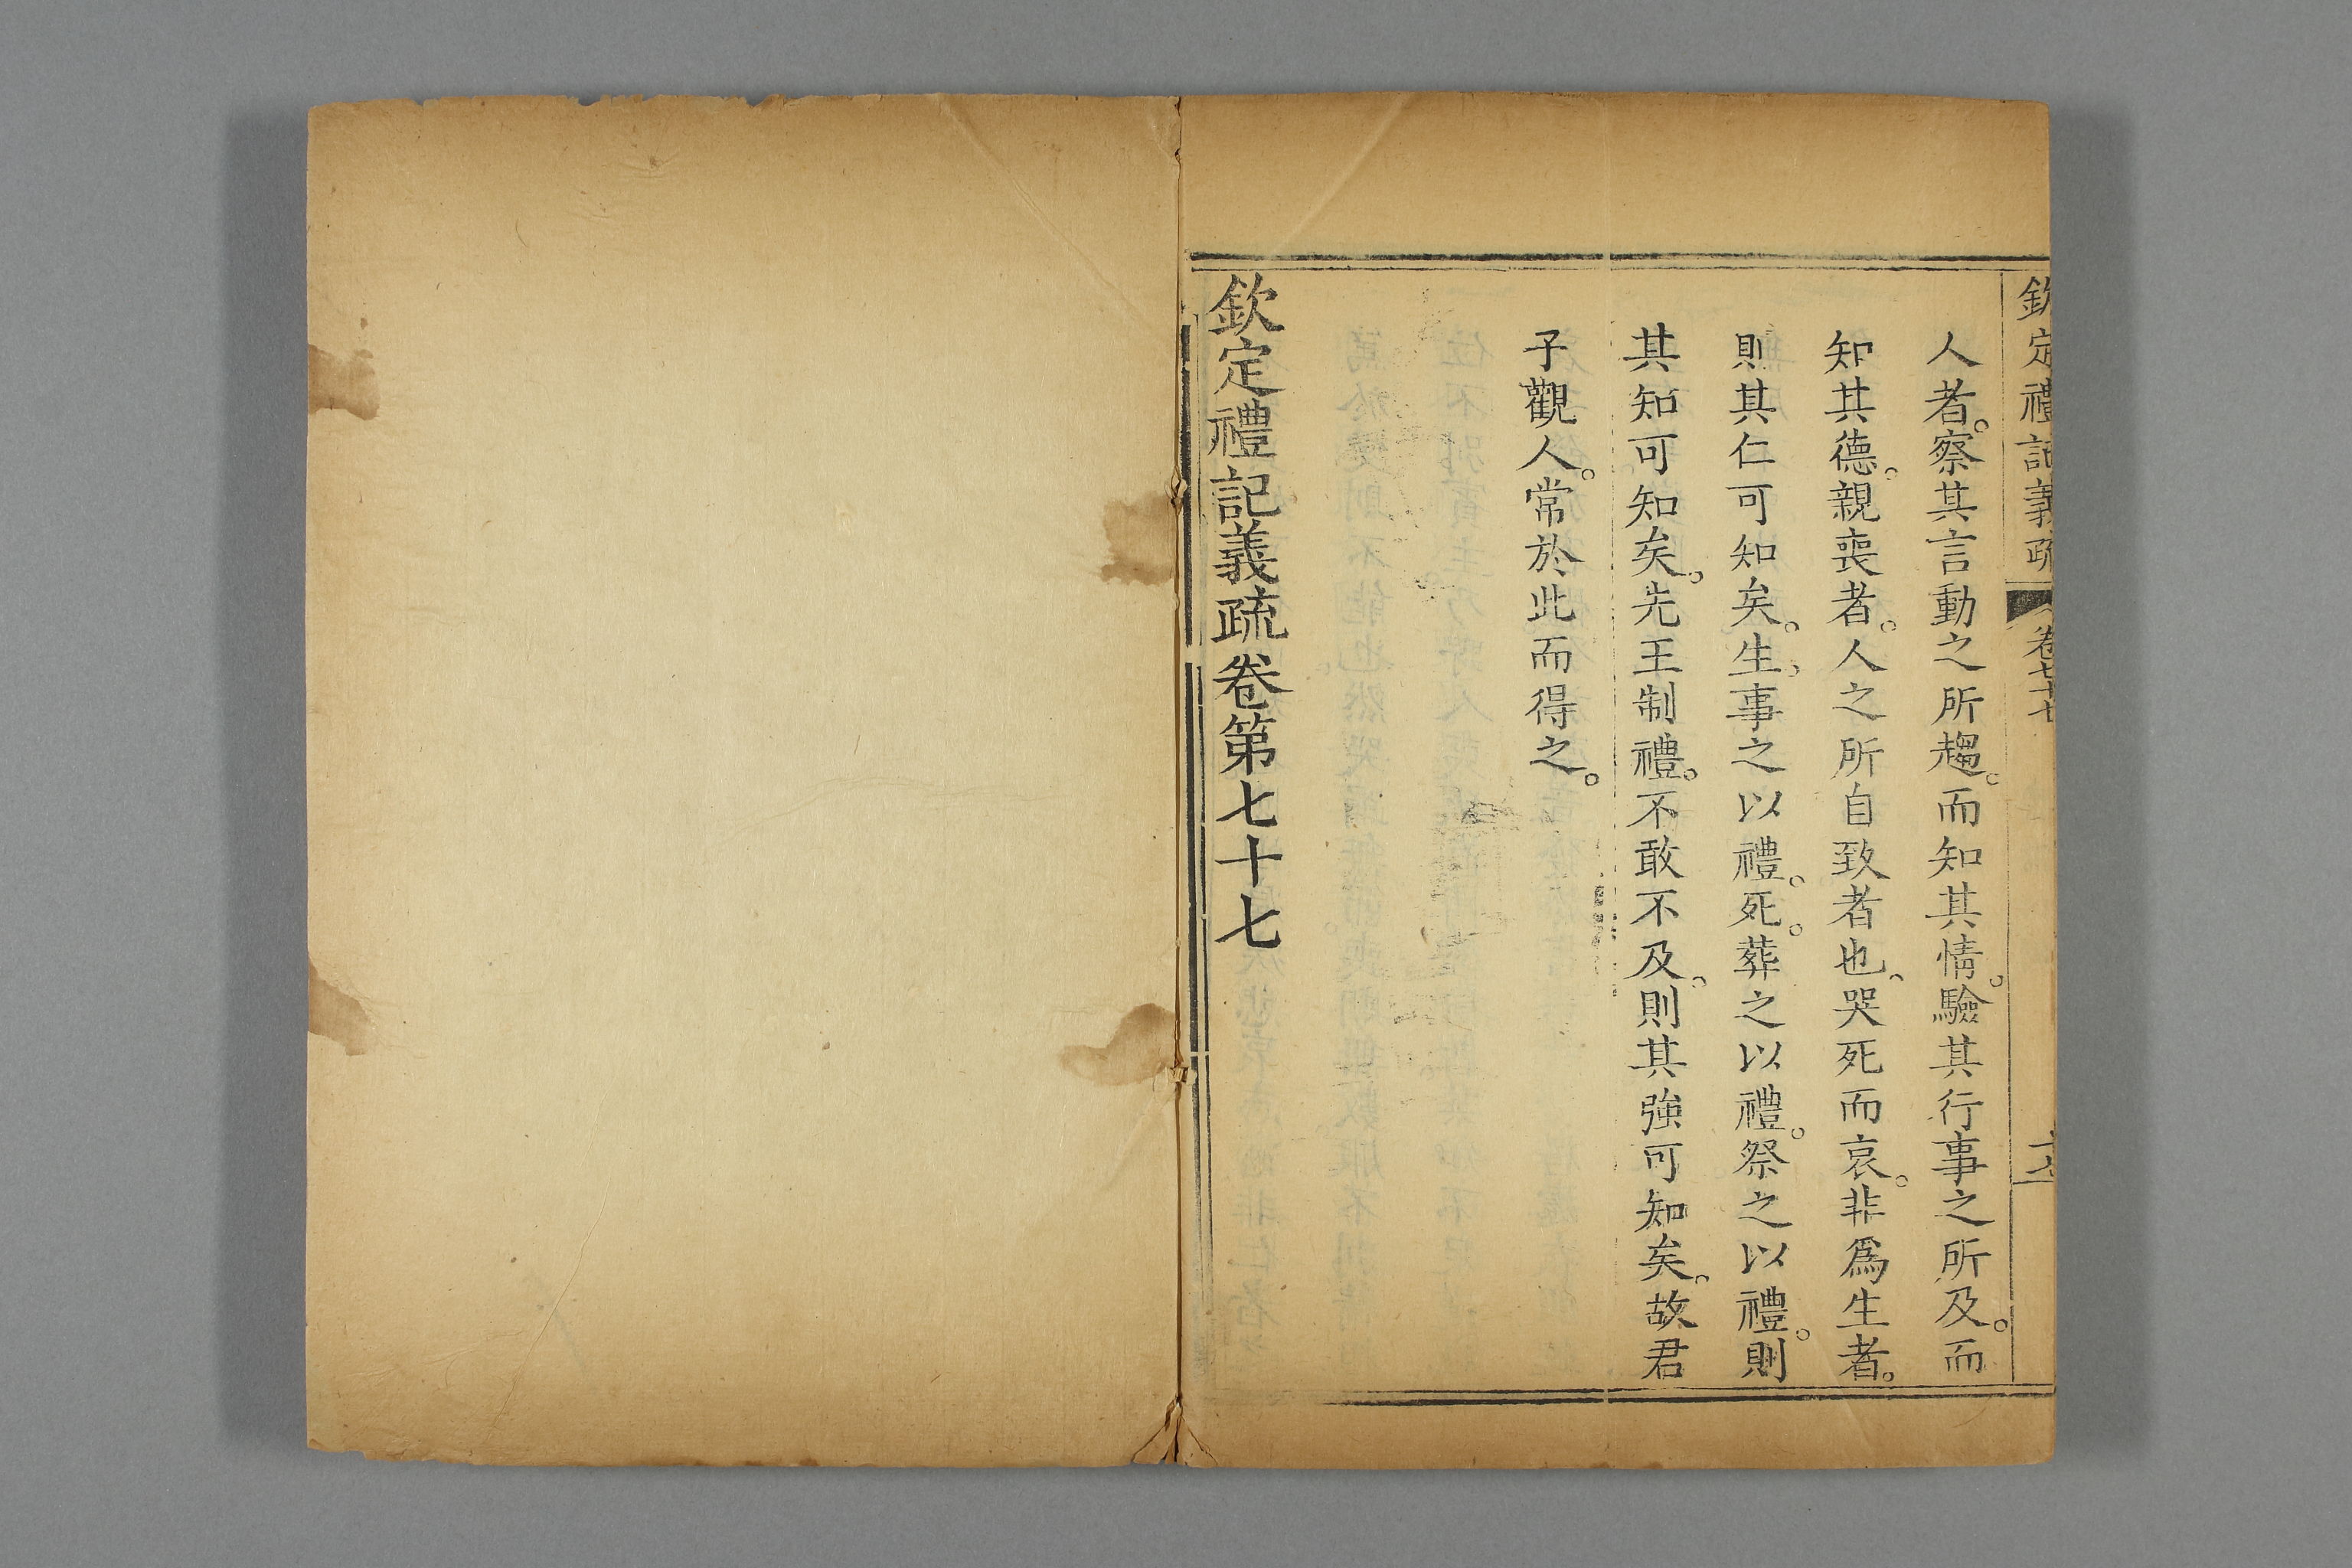 欽定禮記義疏
卷七十七
人者。察其言動之所趨。而知其情。驗其行事之所及。而
知其德。親喪者。人之所自致者也。哭死而哀。非為生者。
則其仁可知矣。生。事之以禮。死。葬之以禮。祭之以禮。則
其知可知矣。先王制禮。不敢不及。則其強可知矣。故君
子觀人。常於此而得之。
欽定禮記義疏卷第七十七